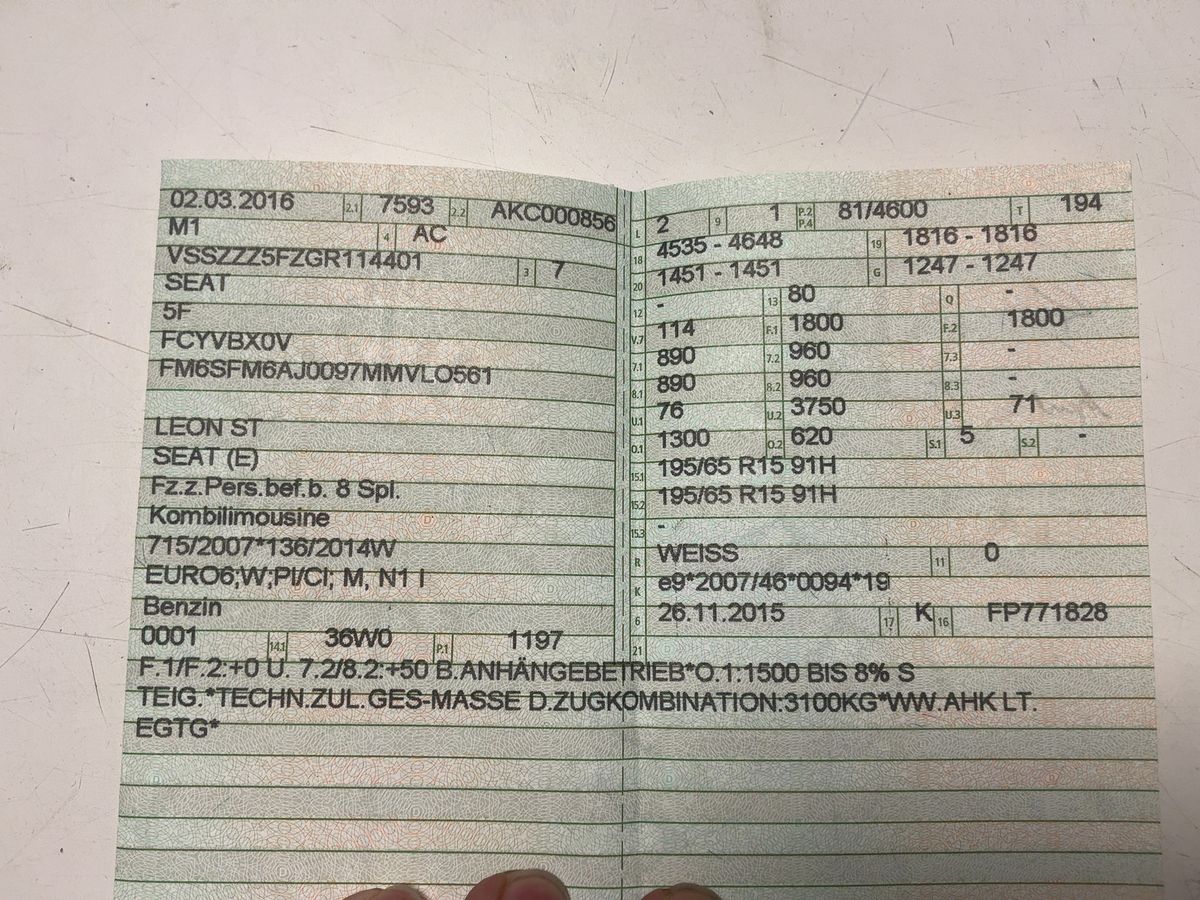 02.03.2016 2.1 7593 2.2 AKC000856
M1 4 AC
VSSZZZ5FZGR114401 3 7
SEAT
5F
FCYVBX0V
FM6SFM6AJ0097MMVLO561
LEON ST
SEAT (E)
Fz.z.Pers.bef.b. 8 Spl.
Kombilimousine
715/2007*136/2014W
EURO6;W;PI/CI; M, N1 I
Benzin
0001 14.1 36W0 P.1 1197
L 2 9 1 P.2 P.4 81/4600 T 194
18 4535 - 4648 19 1816 - 1816
20 1451 - 1451 G 1247 - 1247
12 - 13 80 Q -
V.7 114 F.1 1800 F.2 1800
7.1 890 7.2 960 7.3 -
8.1 890 8.2 960 8.3 -
U.1 76 U.2 3750 U.3 71
O.1 1300 O.2 620 S.1 5 S.2 -
15.1 195/65 R15 91H
15.2 195/65 R15 91H
15.3 -
R WEISS 11 0
K e9*2007/46*0094*19
6 26.11.2015 17 K 16 FP771828
21
F.1/F.2:+0 U. 7.2/8.2:+50 B.ANHÄNGEBETRIEB*O.1:1500 BIS 8% S
TEIG.*TECHN.ZUL.GES-MASSE D.ZUGKOMBINATION:3100KG*WW.AHK LT.
EGTG*